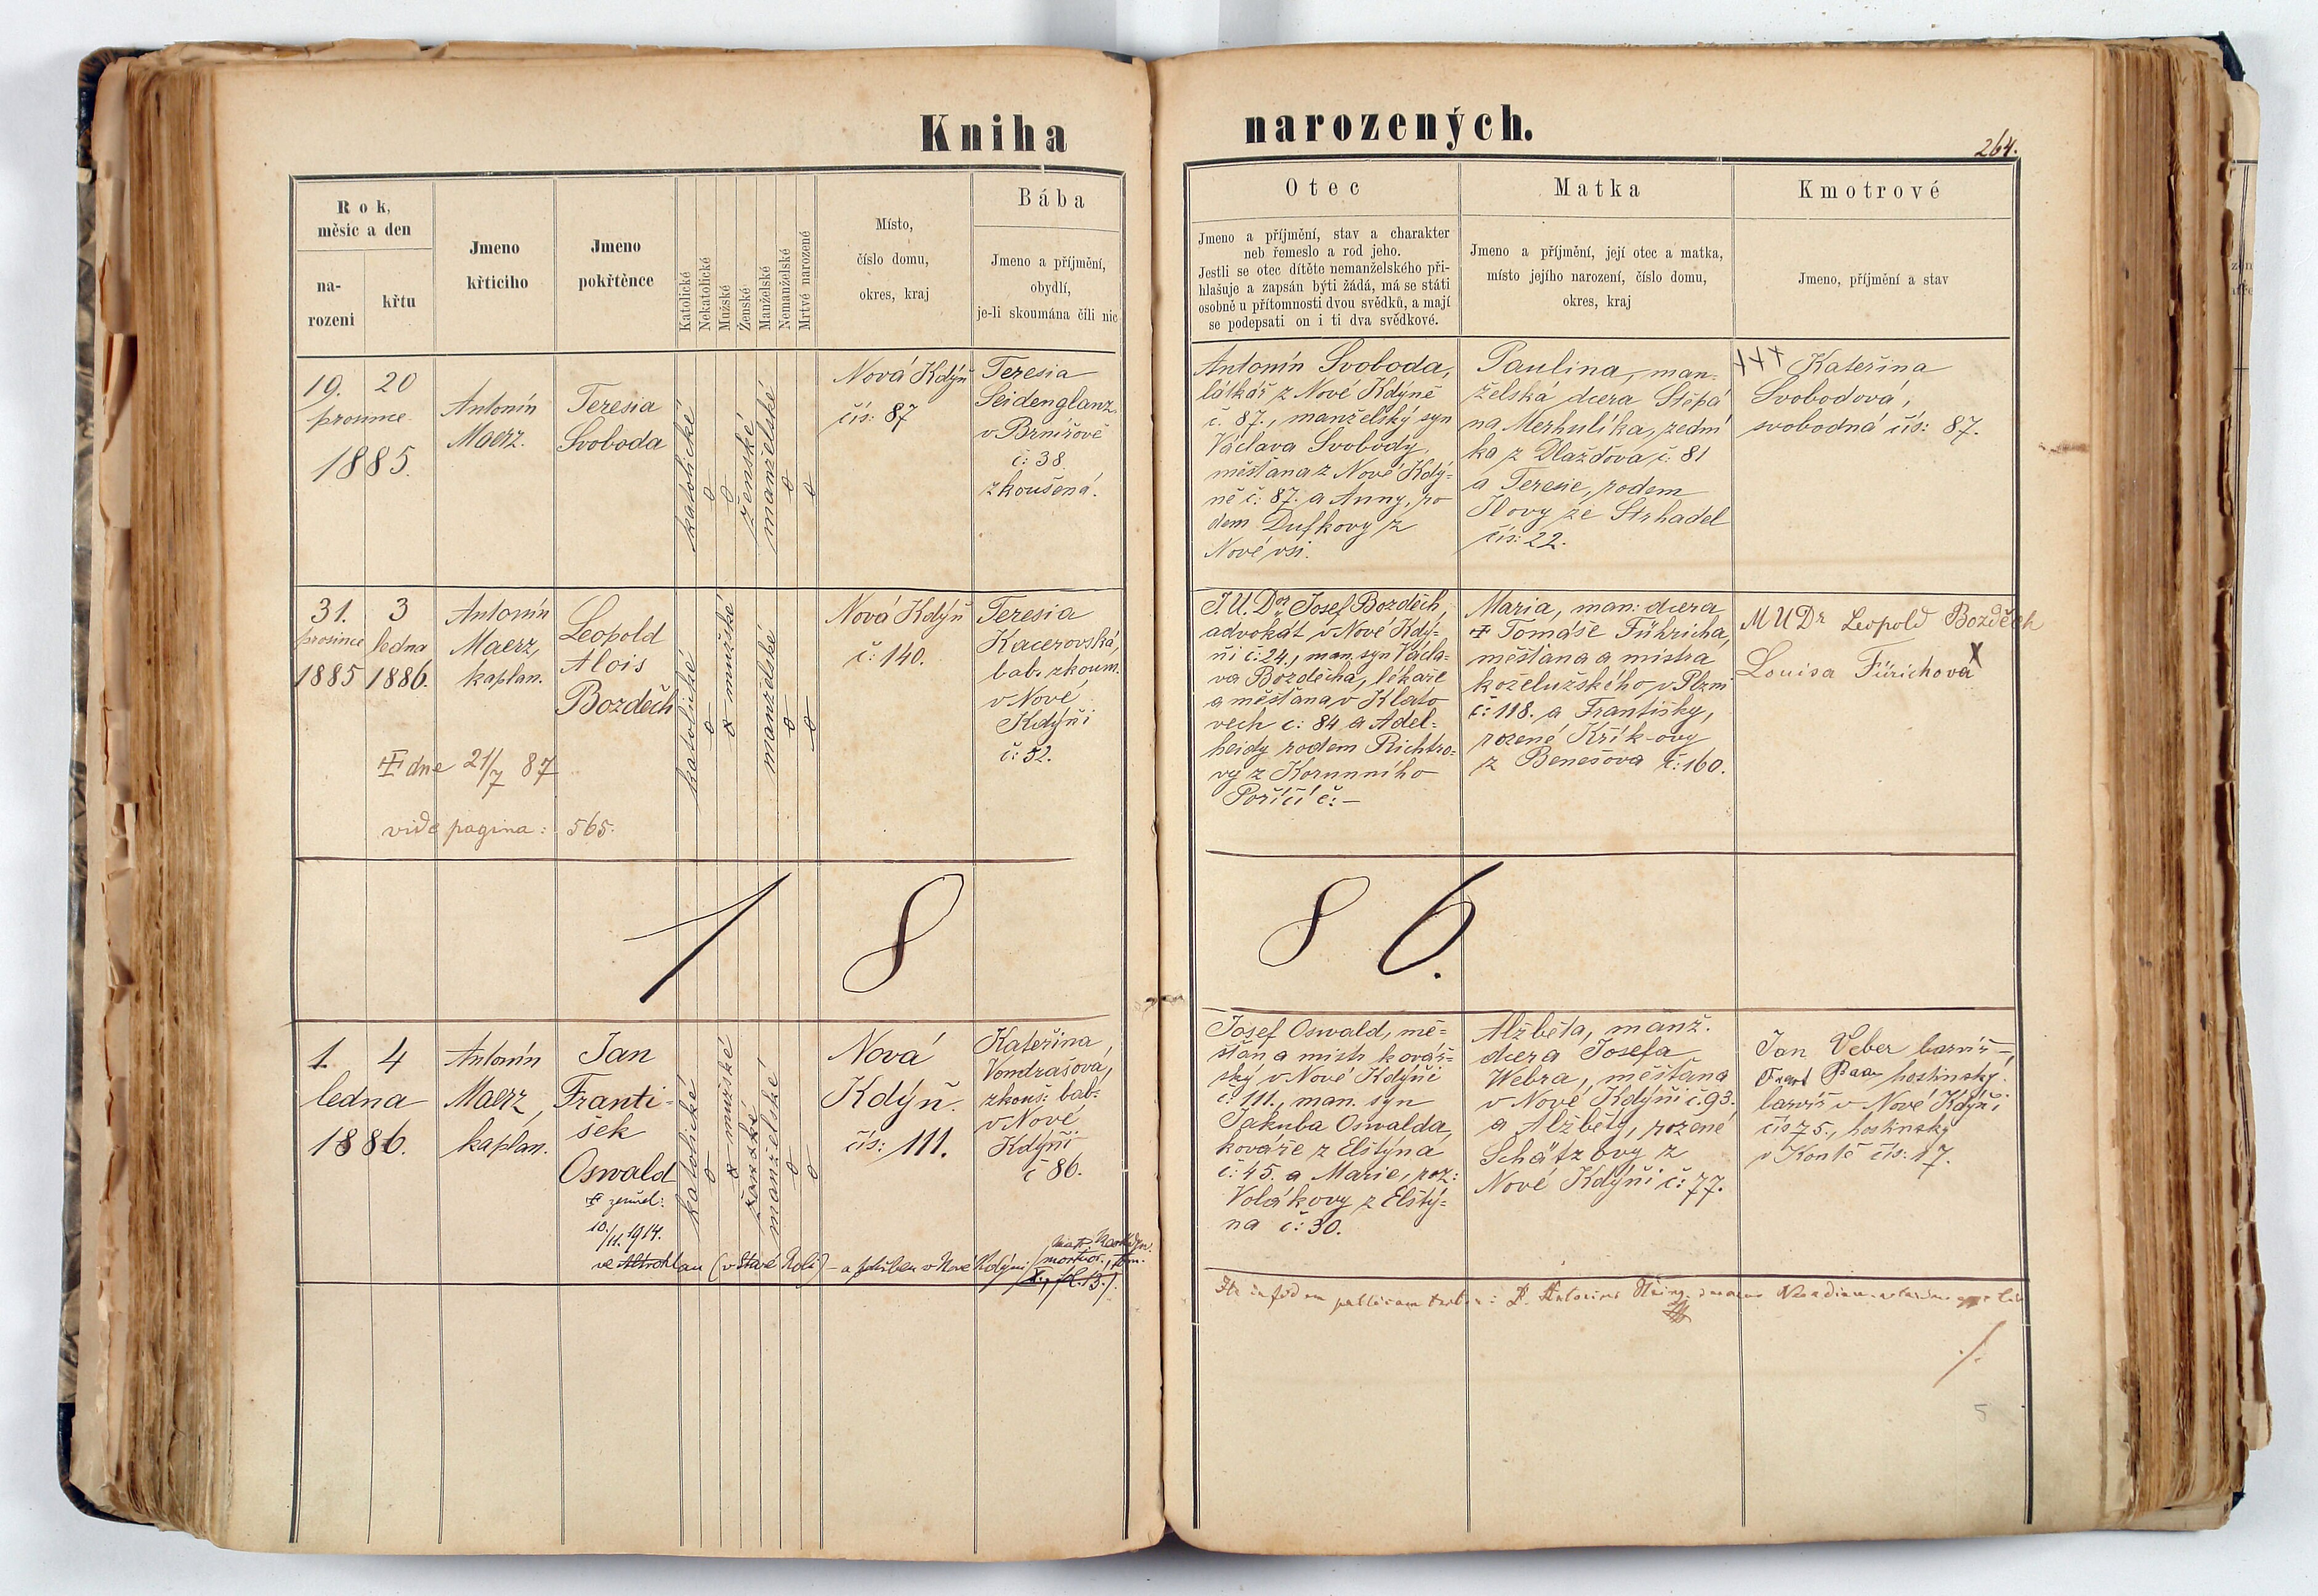 Kniha narozených.
264.
Rok,
měsíc a den
na-
rozeni
křtu
Jmeno
křticiho
Jmeno
pokřtěnce
Katolické
Nekatolické
Mužské
Ženské
Manželské
Nemanželské
Mrtvé narozené
Místo,
číslo domu,
okres, kraj
Bába
Jmeno a příjmění,
obydlí,
je-li skoumána čili nic
Otec
Jmeno a příjmění, stav a charakter
neb řemeslo a rod jeho.
Jestli se otec dítěte nemanželského při-
hlašuje a zapsán býti žádá, má se státi
osobně u přítomnosti dvou svědků, a mají
se podepsati on i ti dva svědkové.
Matka
Jmeno a příjmění, její otec a matka,
místo jejího narození, číslo domu,
okres, kraj
Kmotrové
Jmeno, příjmění a stav
19.
prosince
1885.
20
Antonín
Maerz.
Teresia
Svoboda
katolické
o
o
ženské
manželské
o
o
Nová Kdýň
čís: 87
Teresia
Seidenglanz
v Brnířově
č: 38
zkoušená.
Antonín Svoboda,
látkář z Nové Kdýně
č. 87., manželský syn
Václava Svobody,
měšťana z Nové Kdý-
ně č: 87. a Anny, ro
dem Dufkovy z
Nové vsi.
Paulina, man-
želská dcera Štěpá
na Merhulíka, zední
ka z Dlažďova č: 81
a Teresie, rodem
Slovy ze Strhadel
čís: 22.
+++ Kateřina
Svobodová,
svobodná čís: 87.
31.
prosince
1885
3
ledna
1886.
Antonín
Maerz,
kaplan.
Leopold
Alois
Bozděch
katolické
o
o mužské
manželské
o
o
Nová Kdýň
č: 140.
Teresia
Kacerovská,
bab. zkoum.
v Nové
Kdýňi
č: 52.
dne 21/7 87
vide pagina: 565.
J.U.Dor Josef Bozděch,
advokát v Nové Kdý-
ni č: 24., man. syn Václa-
va Bozděcha, lékaře
a měšťana v Klato
vech č: 84 a Adel-
heidy rodem Richtro-
vy z Korunního
Poříčí č: —
Maria, man: dcera
Tomáše Führicha,
měšťana a mistra
koželužského v Plzni
č: 118. a Františky,
rozené Křík-ovy
z Benešova č: 160.
MUDr Leopold Bozděch
Louisa Fürichová
1 8 8 6.
1.
ledna
1886.
4
Antonín
Maerz,
kaplan.
Jan
Franti-
šek
Oswald
zemřel:
10./11. 1914.
katolické
o
o mužské
manželské
o
o
Nová
Kdýň.
čís: 111.
Kateřina
Vondrašová,
zkouš: bab:
v Nové
Kdýni
č 86.
Josef Oswald, mě-
šťan a mistr kovář-
ský v Nové Kdýňi
č: 111., man. syn
Jakuba Oswalda
kováře z Elštýna
č: 45. a Marie, roz:
Volákovy z Elštý-
na č: 30.
Alžběta, manž.
dcera Josefa
Webra, měšťana
v Nové Kdýňi č. 93.
a Alžběty, rozené
Schätzovy z
Nové Kdýňi č: 77.
Jan Veber barvíř
hostinský
barvíř v Nové Kdýňi
čís 75., hostinský
v Kontě čís: 17.